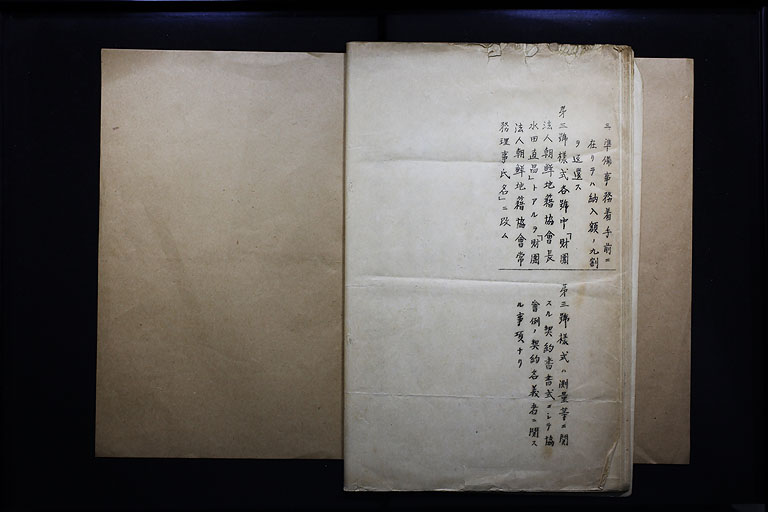 三 準備事務着手前ニ
在リテハ納入額ノ九割
ヲ返還ス
第三號樣式各號中「財團
法人朝鮮地籍協會長
水田直昌」トアルヲ「財團
法人朝鮮地籍協會常
務理事氏名」ニ改ム
第三號樣式ハ測量等ニ関
スル契約書書式ニシテ協
會側ノ契約名義者ニ関ス
ル事項ナリ